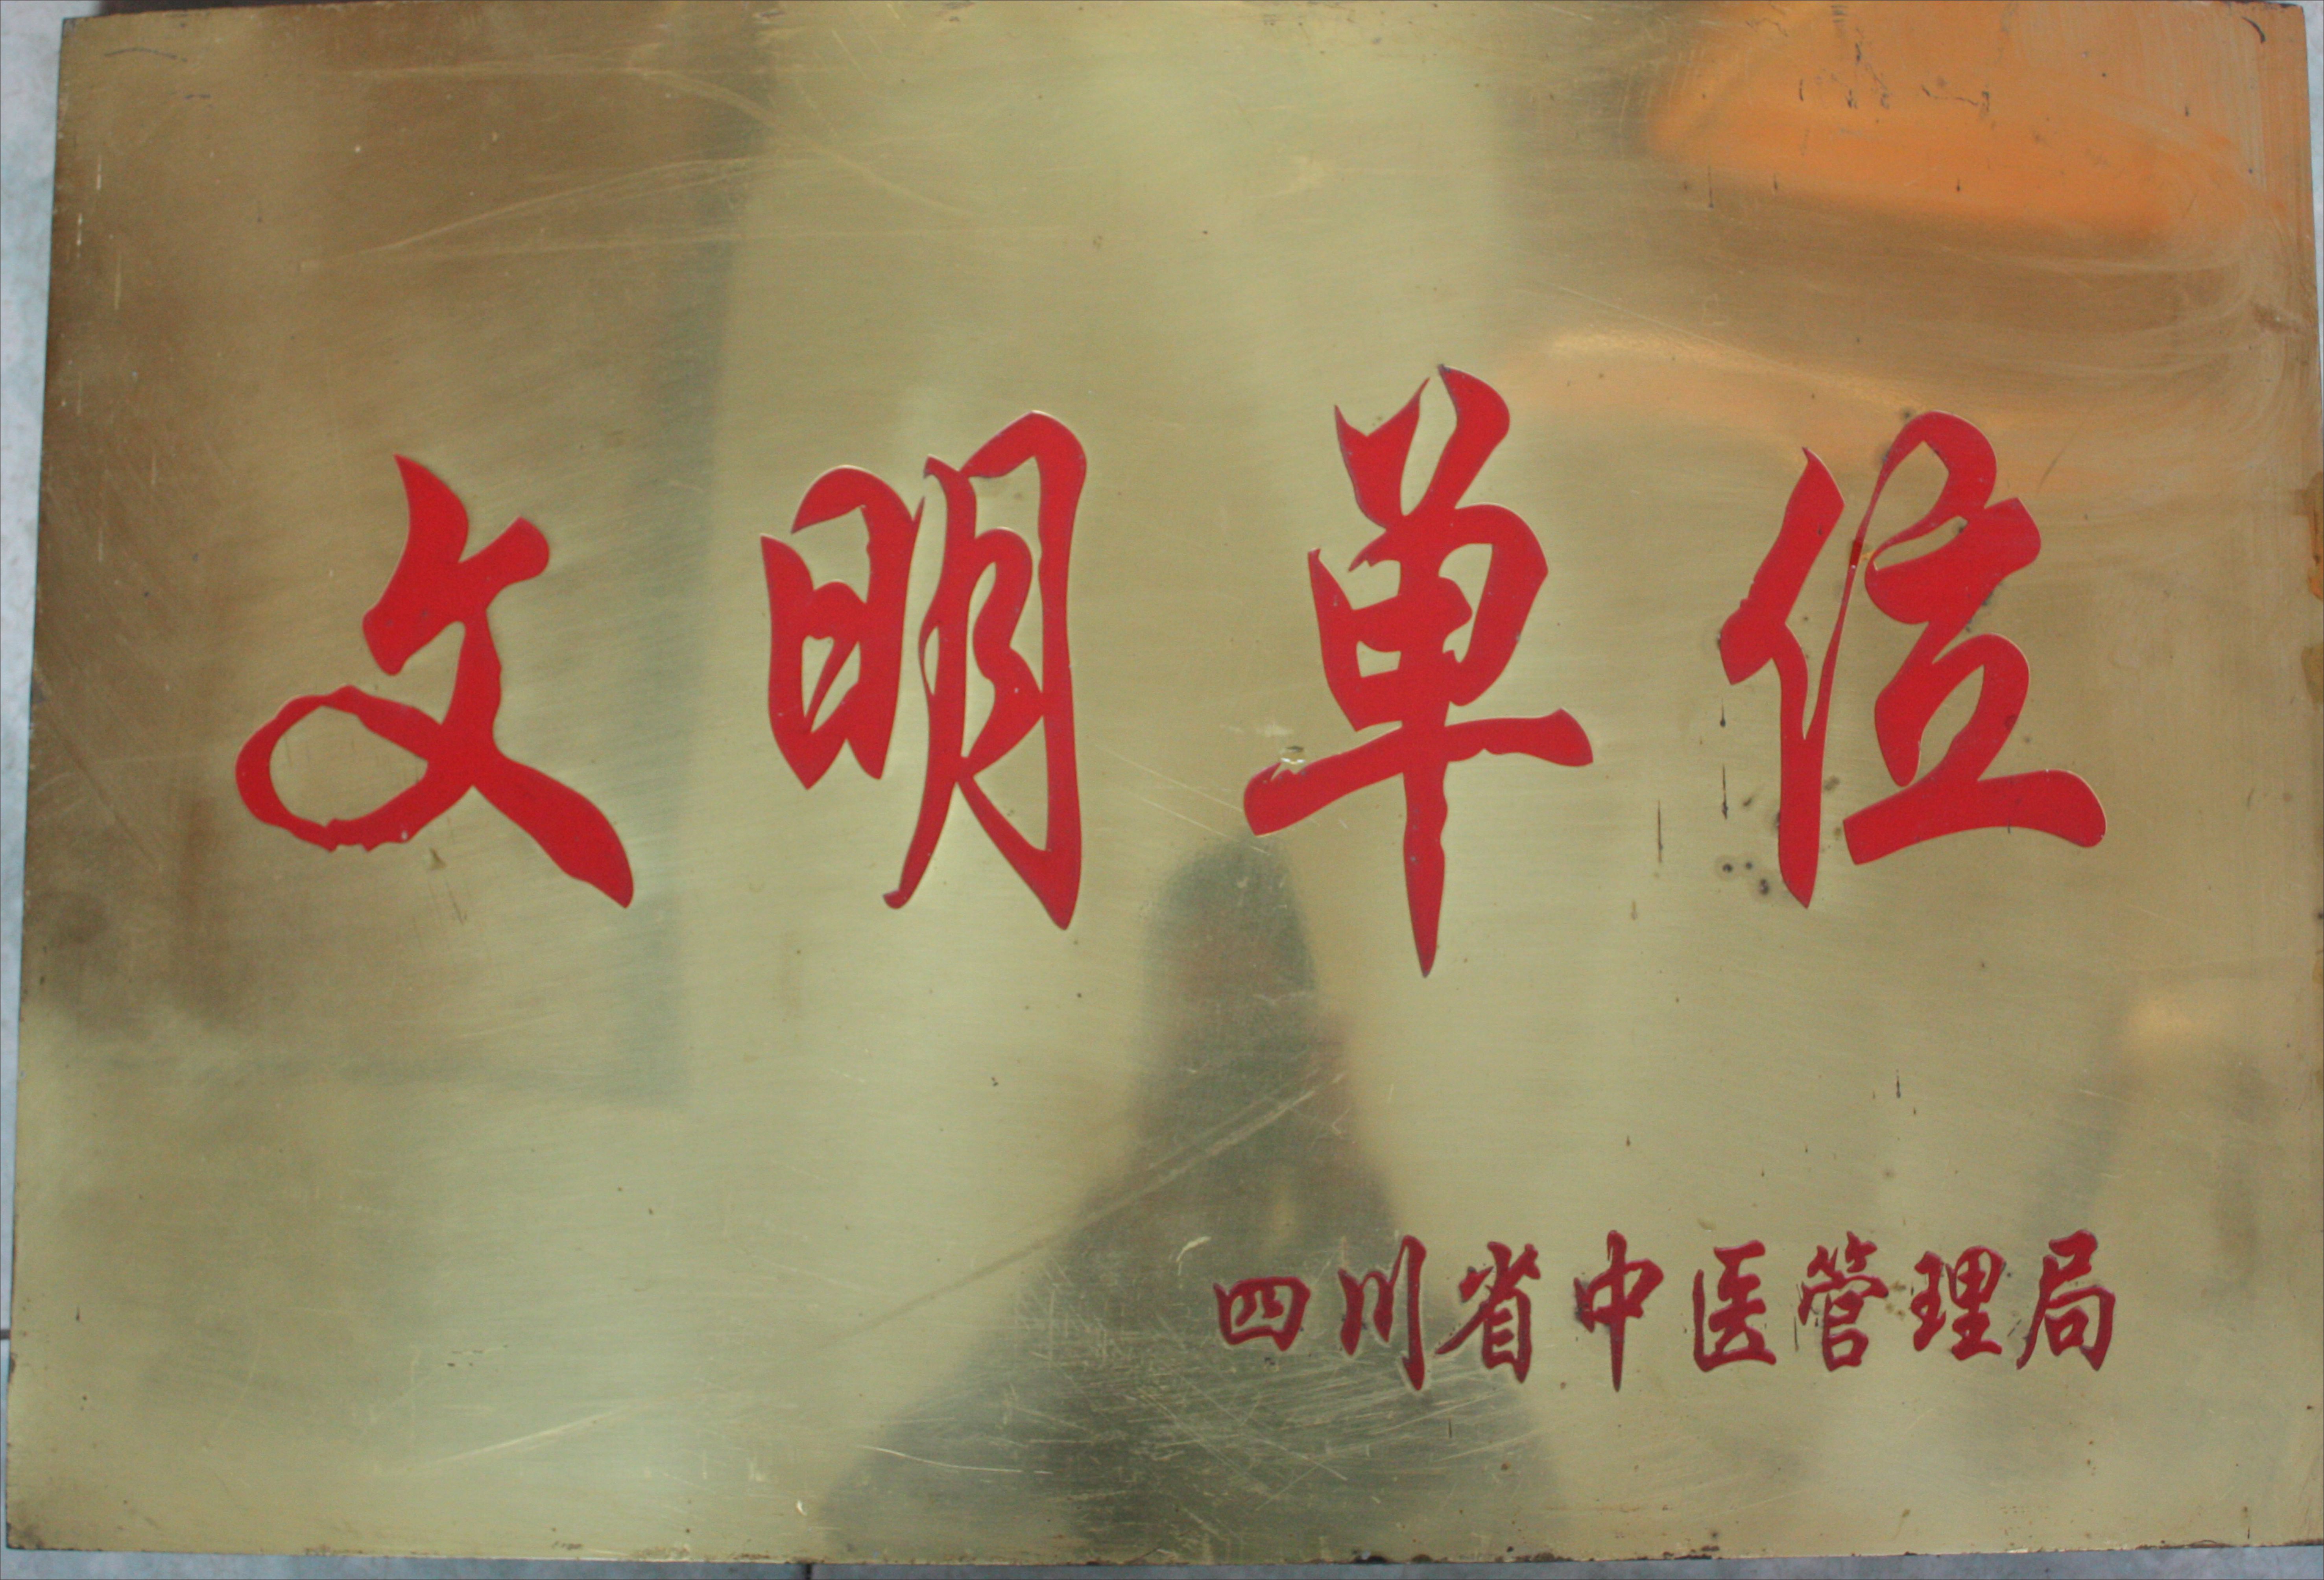 文明单位
四川省中医管理局